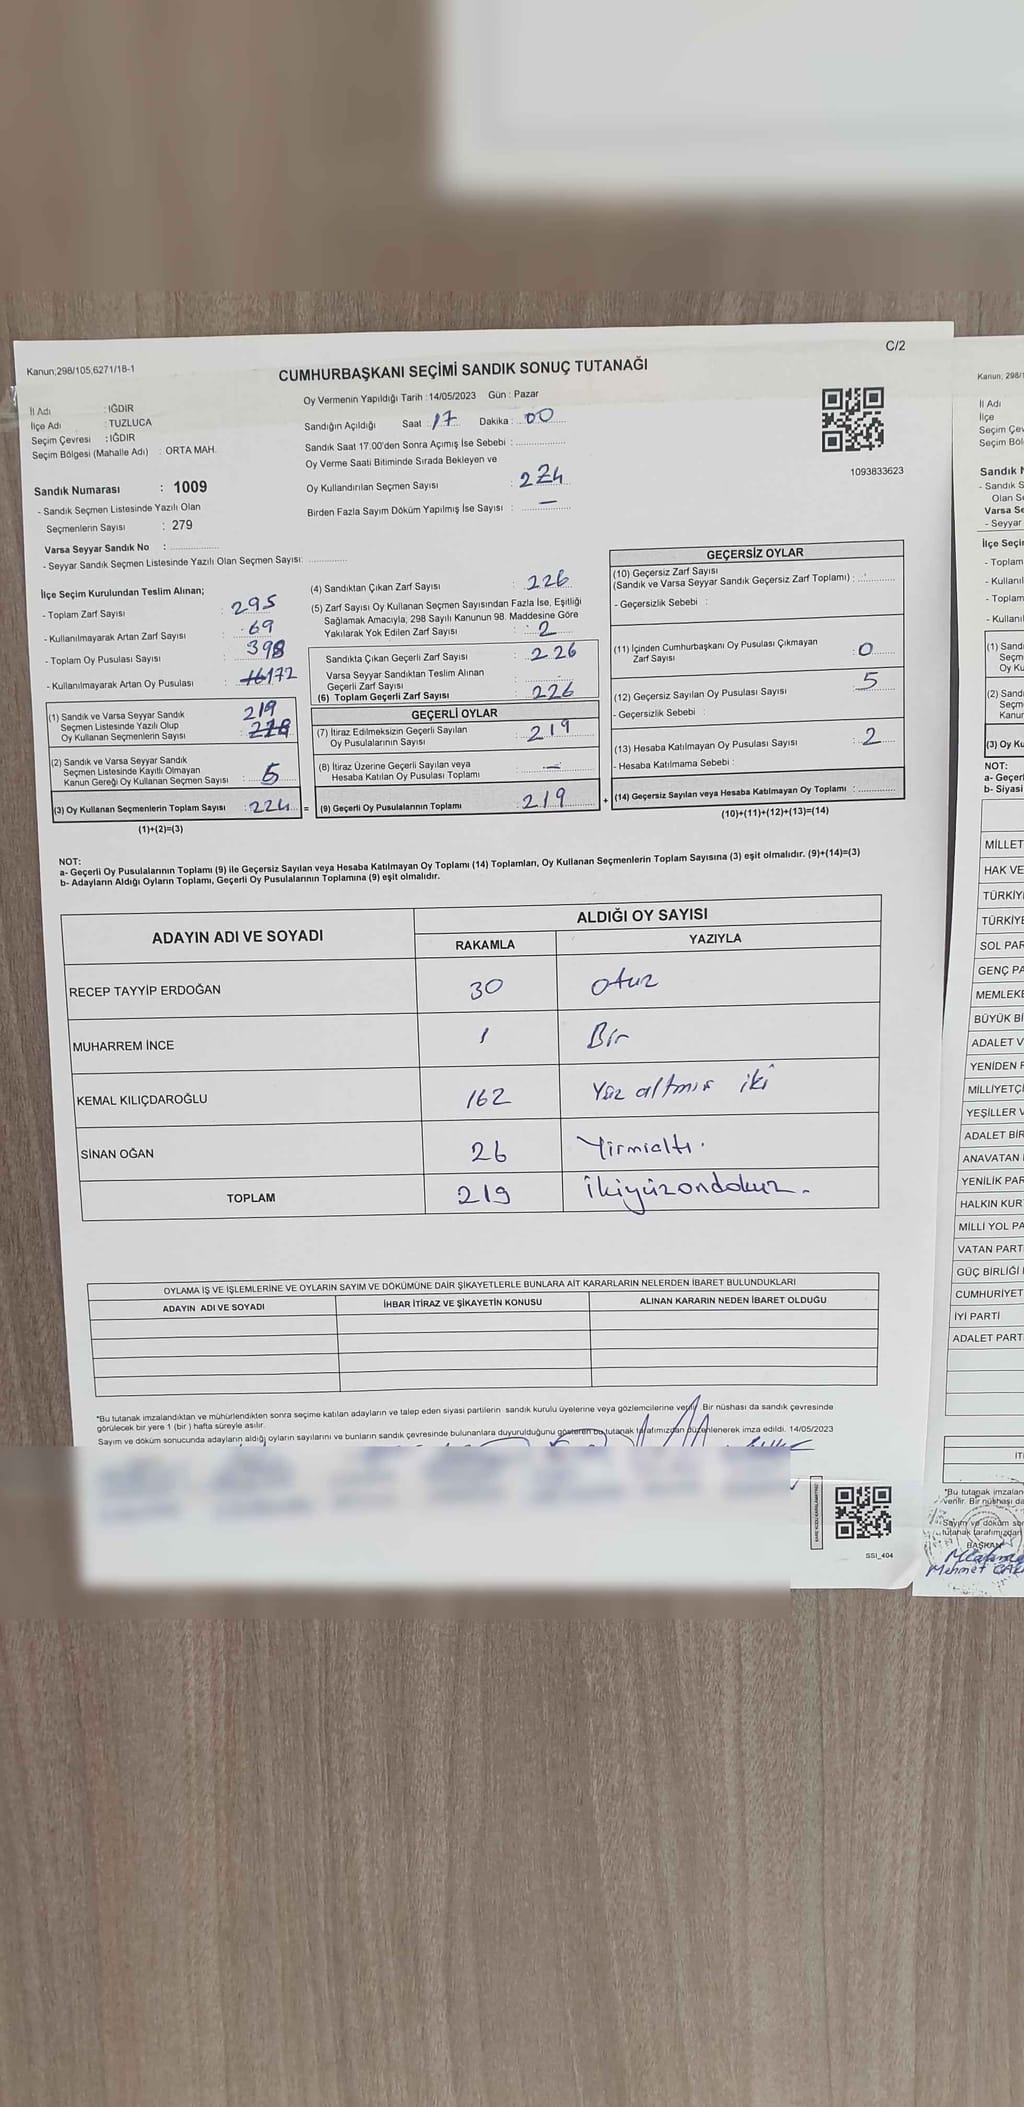 Kanun;298/105,6271/18-1
C/2
CUMHURBAŞKANI SEÇİMİ SANDIK SONUÇ TUTANAĞI
İl Adı : IĞDIR
İlçe Adı : TUZLUCA
Seçim Çevresi : IĞDIR
Seçim Bölgesi (Mahalle Adı) : ORTA MAH.
Sandık Numarası : 1009
- Sandık Seçmen Listesinde Yazılı Olan
Seçmenlerin Sayısı : 279
Varsa Seyyar Sandık No :
- Seyyar Sandık Seçmen Listesinde Yazılı Olan Seçmen Sayısı:
Oy Vermenin Yapıldığı Tarih : 14/05/2023 Gün : Pazar
Sandığın Açıldığı Saat : 17 Dakika : 00
Sandık Saat 17.00'den Sonra Açımış İse Sebebi :
Oy Verme Saati Bitiminde Sırada Bekleyen ve
Oy Kullandırılan Seçmen Sayısı : 224
Birden Fazla Sayım Döküm Yapılmış İse Sayısı : —
1093833623
İlçe Seçim Kurulundan Teslim Alınan;
- Toplam Zarf Sayısı : 295
- Kullanılmayarak Artan Zarf Sayısı : 69
- Toplam Oy Pusulası Sayısı : 398
- Kullanılmayarak Artan Oy Pusulası : 172
(1) Sandık ve Varsa Seyyar Sandık
Seçmen Listesinde Yazılı Olup
Oy Kullanan Seçmenlerin Sayısı : 219
(2) Sandık ve Varsa Seyyar Sandık
Seçmen Listesinde Kayıtlı Olmayan
Kanun Gereği Oy Kullanan Seçmen Sayısı : 5
(3) Oy Kullanan Seçmenlerin Toplam Sayısı : 224 =
(1)+(2)=(3)
(4) Sandıktan Çıkan Zarf Sayısı : 226
(5) Zarf Sayısı Oy Kullanan Seçmen Sayısından Fazla İse, Eşitliği
Sağlamak Amacıyla, 298 Sayılı Kanunun 98. Maddesine Göre
Yakılarak Yok Edilen Zarf Sayısı : 2
Sandıkta Çıkan Geçerli Zarf Sayısı : 226
Varsa Seyyar Sandıktan Teslim Alınan
Geçerli Zarf Sayısı
(6) Toplam Geçerli Zarf Sayısı : 226
GEÇERLİ OYLAR
(7) İtiraz Edilmeksizin Geçerli Sayılan
Oy Pusulalarının Sayısı : 219
(8) İtiraz Üzerine Geçerli Sayılan veya
Hesaba Katılan Oy Pusulası Toplamı : —
(9) Geçerli Oy Pusulalarının Toplamı : 219 +
GEÇERSİZ OYLAR
(10) Geçersiz Zarf Sayısı
(Sandık ve Varsa Seyyar Sandık Geçersiz Zarf Toplamı) :
- Geçersizlik Sebebi :
(11) İçinden Cumhurbaşkanı Oy Pusulası Çıkmayan
Zarf Sayısı : 0
(12) Geçersiz Sayılan Oy Pusulası Sayısı : 5
- Geçersizlik Sebebi :
(13) Hesaba Katılmayan Oy Pusulası Sayısı : 2
- Hesaba Katılmama Sebebi :
(14) Geçersiz Sayılan veya Hesaba Katılmayan Oy Toplamı :
(10)+(11)+(12)+(13)=(14)
NOT:
a- Geçerli Oy Pusulalarının Toplamı (9) ile Geçersiz Sayılan veya Hesaba Katılmayan Oy Toplamı (14) Toplamları, Oy Kullanan Seçmenlerin Toplam Sayısına (3) eşit olmalıdır. (9)+(14)=(3)
b- Adayların Aldığı Oyların Toplamı, Geçerli Oy Pusulalarının Toplamına (9) eşit olmalıdır.
ADAYIN ADI VE SOYADI ALDIĞI OY SAYISI
RAKAMLA YAZIYLA
RECEP TAYYİP ERDOĞAN 30 otuz
MUHARREM İNCE 1 Bir
KEMAL KILIÇDAROĞLU 162 Yüz altmış iki
SİNAN OĞAN 26 Yirmialtı.
TOPLAM 219 ikiyüzondokuz.
OYLAMA İŞ VE İŞLEMLERİNE VE OYLARIN SAYIM VE DÖKÜMÜNE DAİR ŞİKAYETLERLE BUNLARA AİT KARARLARIN NELERDEN İBARET BULUNDUKLARI
ADAYIN ADI VE SOYADI İHBAR İTİRAZ VE ŞİKAYETİN KONUSU ALINAN KARARIN NEDEN İBARET OLDUĞU
*Bu tutanak imzalandıktan ve mühürlendikten sonra seçime katılan adayların ve talep eden siyasi partilerin sandık kurulu üyelerine veya gözlemcilerine verilir. Bir nüshası da sandık çevresinde
görülecek bir yere 1 (bir ) hafta süreyle asılır.
Sayım ve döküm sonucunda adayların aldığı oyların sayılarını ve bunların sandık çevresinde bulunanlara duyurulduğunu gösteren bu tutanak tarafımızdan düzenlenerek imza edildi. 14/05/2023
SSI_404
Kanun; 298/1
İl Adı
İlçe
Seçim Çev
Seçim Böl
Sandık N
- Sandık S
Olan S
Varsa Se
- Seyyar
İlçe Seçi
- Toplam
- Kullanıl
- Toplam
- Kullanıl
(1) Sandı
Seçm
Oy Ku
(2) Sandı
Seçm
Kanur
(3) Oy Ku
NOT:
a- Geçer
b- Siyasi
MİLLET
HAK VE
TÜRKİY
TÜRKİYE
SOL PAR
GENÇ PA
MEMLEKE
BÜYÜK Bİ
ADALET V
YENİDEN
MİLLİYETÇİ
YEŞİLLER V
ADALET BİR
ANAVATAN
YENİLİK PAR
HALKIN KUR
MİLLİ YOL PA
VATAN PARTİ
GÜÇ BİRLİĞİ
CUMHURİYET
İYİ PARTİ
ADALET PARTİ
İT
*Bu tutanak imzalan
verilir. Bir nüshası da
Sayım ve döküm so
tutanak tarafımızdan
BAŞKAN
Mehmet